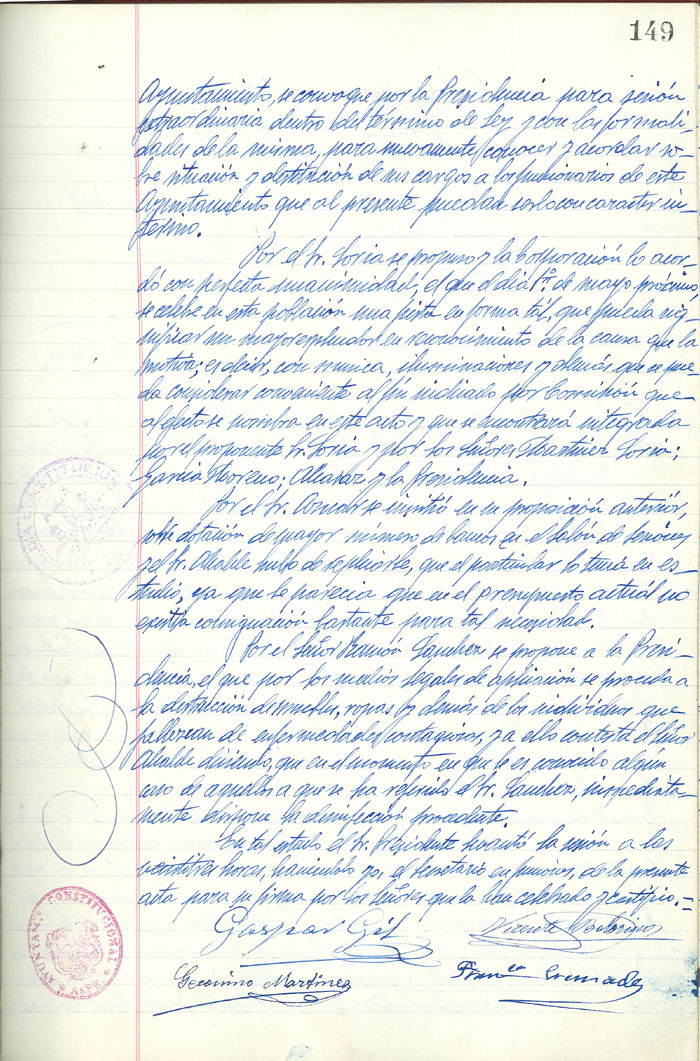 149
Ayuntamiento, se convoque por la Presidencia para sesión
extraordinaria dentro del término de Ley y con las formali-
dades de la misma, para nuevamente conocer y acordar so-
bre situación y destitución de sus cargos a los funcionarios de este
Ayuntamiento que al presente puedan serlo con caracter in-
terino.
Por el Sr. Soria se propuso y la Corporación lo acor-
dó con perfecta unanimidad, el que el dia 1º de mayo próximo
se celebre en esta población una fiesta en forma tal, que pueda sig-
nificar un mayor esplendor en reconocimiento de la causa que la
motiva; es decir, con musica, iluminaciones y demás que se pue-
da considerar conveniente al fin indicado por Comisión que
al efecto se nombra en este acto y que se encontrará integrada
por el proponente Sr. Soria y por los Señores Martinez Soria;
Garcia Moreno; Alcaraz y la Presidencia.
Por el Sr. Aznar se insistió en su proposición anterior,
sobre dotación de mayor número de bancos en el Salón de Sesiones
y el Sr. Alcalde hubo de replicarle, que el particular lo tenia en es-
tudio, ya que le parecia que en el presupuesto actual no
existia consignación bastante para tal necesidad.
Por el Señor Ramón Sanchez se propone a la Presi-
dencia, el que por los medios legales de aplicación se proceda a
la destrucción de muebles, ropas y demás de los individuos que
fallezcan de enfermedades contagiosas, y a ello contesta el Señor
Alcalde diciendo, que en el momento en que le es conocido algún
caso de aquellos a que se ha referido el Sr. Sanchez, inmediata-
mente dispone la desinfección procedente.
En tal estado el Sr. Presidente levantó la sesión a las
veintitres horas, haciendolo yo, el Secretario en funciones, de la presente
acta para su firma por los Señores que la han celebrado y certifico.=
Gaspar Gil Vicente
Geronimo Martínez Franco
CONSTITUCION
AYUNTAM. CONSTITUCIONAL * ASPE *